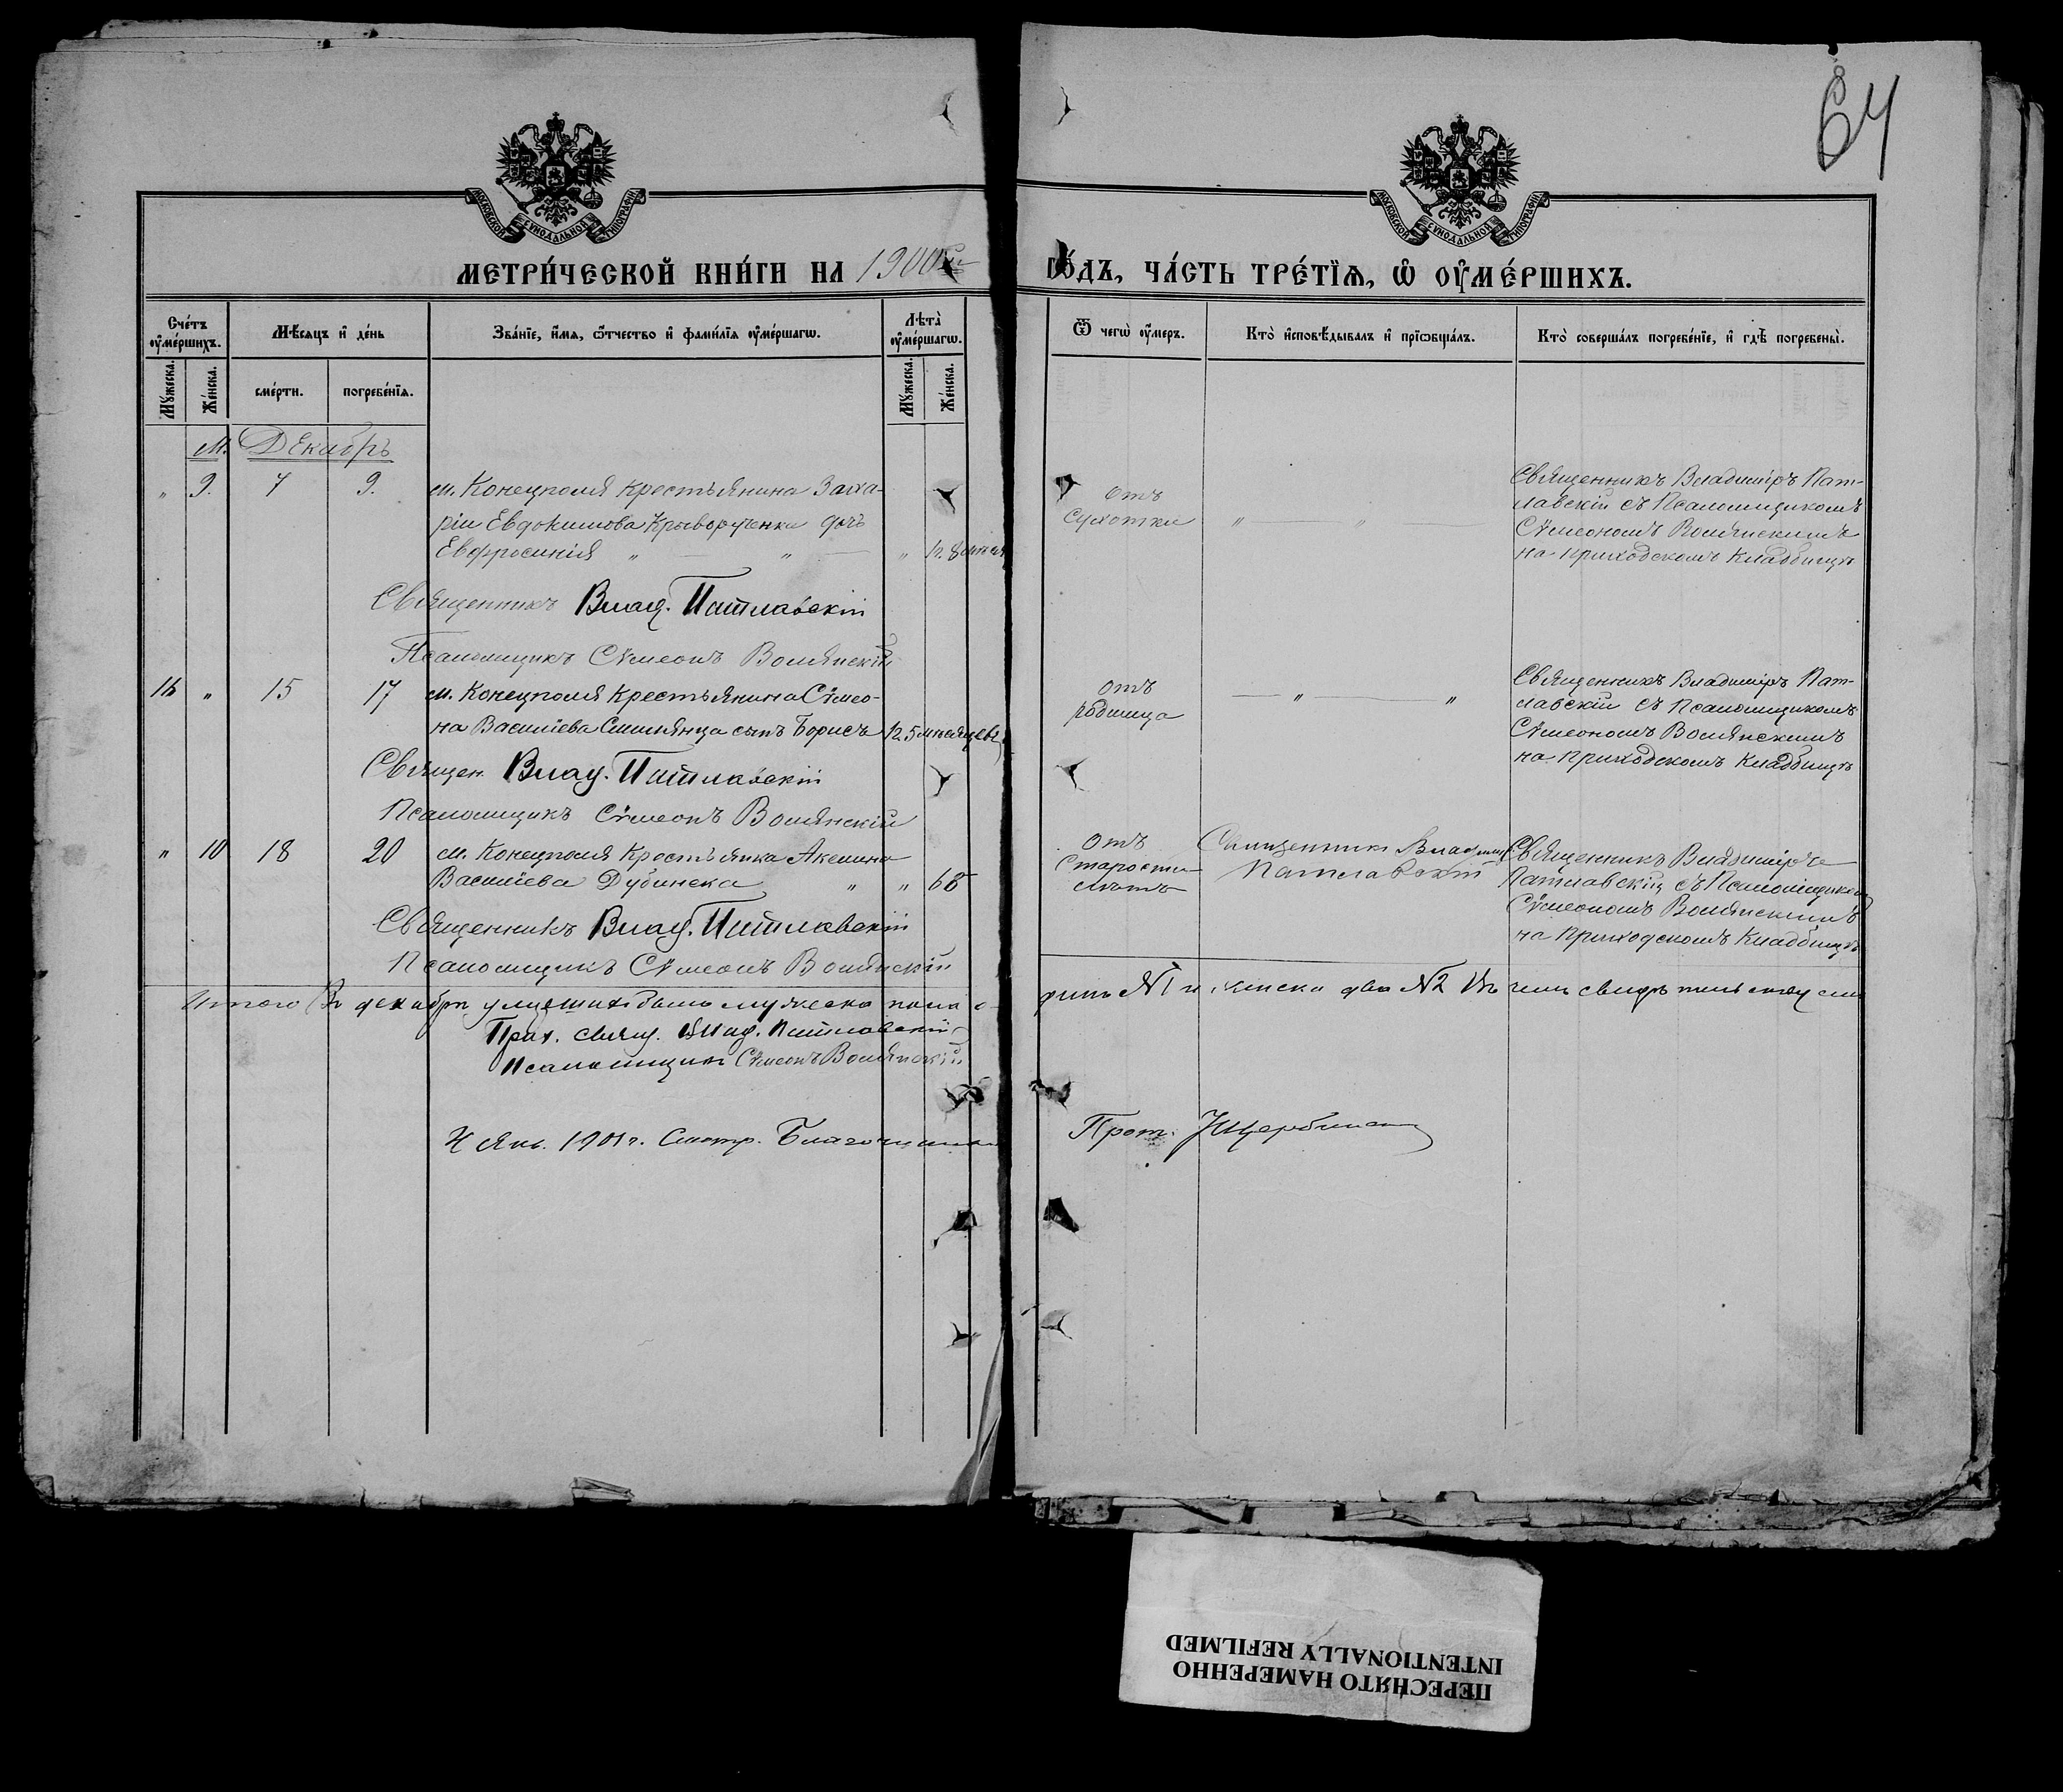 64
МОСКОВСКОЙ СѴНОДАЛЬНОЙ ТИПОГРАФІИ
МОСКОВСКОЙ СѴНОДАЛЬНОЙ ТИПОГРАФІИ
МЕТРИ́ЧЕСКОЙ КНИ́ГИ НА 1900
ГО́ДЪ, ЧА́СТЬ ТРЕ́ТЇѦ, Ѡ҆ ОУ҆МЕ́РШИХЪ.
Сче́тъ оу҆ме́ршихъ.
Мѣ́сѧцъ и҆ де́нь
Зва́нїе, и҆́мѧ, ѻ҆́тчество и҆ фами́лїѧ оу҆ме́ршагѡ.
Лѣта̀ оу҆ме́ршагѡ.
Ѿ чегѡ̀ оу҆́меръ.
Кто̀ и҆сповѣ́дывалъ и҆ прїѡбща́лъ.
Кто̀ соверша́лъ погребе́нїе, и҆ гдѣ̀ погребены̀.
Мꙋ́жеска.
Же́нска.
сме́рти.
погребе́нїѧ.
Мꙋ́жеска.
Же́нска.
М. Декабрь
" 9. 7 9. м. Конецполя крестьянина Заха-
ріи Евдокимова Криворученки дочь
Евфросинія " — " — "
отъ
сухотки " "
Священникъ Владиміръ Пат-
лавскій съ Псаломщикомъ
Сѵмеономъ Волянскимъ
на приходскомъ кладбищѣ
Священникъ Влад. Патлавскій
Псаломщикъ Сѵмеонъ Волянскій
16 " 15 17 м. Конецполя крестьянина Сѵмео-
на Василіева сынъ Борисъ 5 мѣсяцевъ
отъ
родимца — " — "
Священникъ Владиміръ Пат-
лавскій съ Псаломщикомъ
Сѵмеономъ Волянскимъ
на приходскомъ кладбищѣ
Священ. Влад. Патлавскій
Псаломщикъ Сѵмеонъ Волянскій
" 10 18 20 м. Конецполя крестьянка Акелина
Василіева Дубинска " " 68
отъ
старости
лѣтъ
Священникъ Владиміръ
Патлавскій
Священникъ Владиміръ
Патлавскій съ Псаломщикомъ
Сѵмеономъ Волянскимъ
на приходскомъ кладбищѣ
Священникъ Влад. Патлавскій
Псаломщикъ Сѵмеонъ Волянскій
Итого въ декабрѣ умершихъ было мужеска пола о-
динъ №1 и женска два №2 въ чемъ свидѣтельствуемъ
Прих. свящ. Влад. Патлавскій
Псаломщикъ Сѵмеонъ Волянскій
Янв. 1901 г. Смотр. Благочинный
Прот.
ПЕРЕСНЯТО НАМЕРЕННО
INTENTIONALLY REFILMED